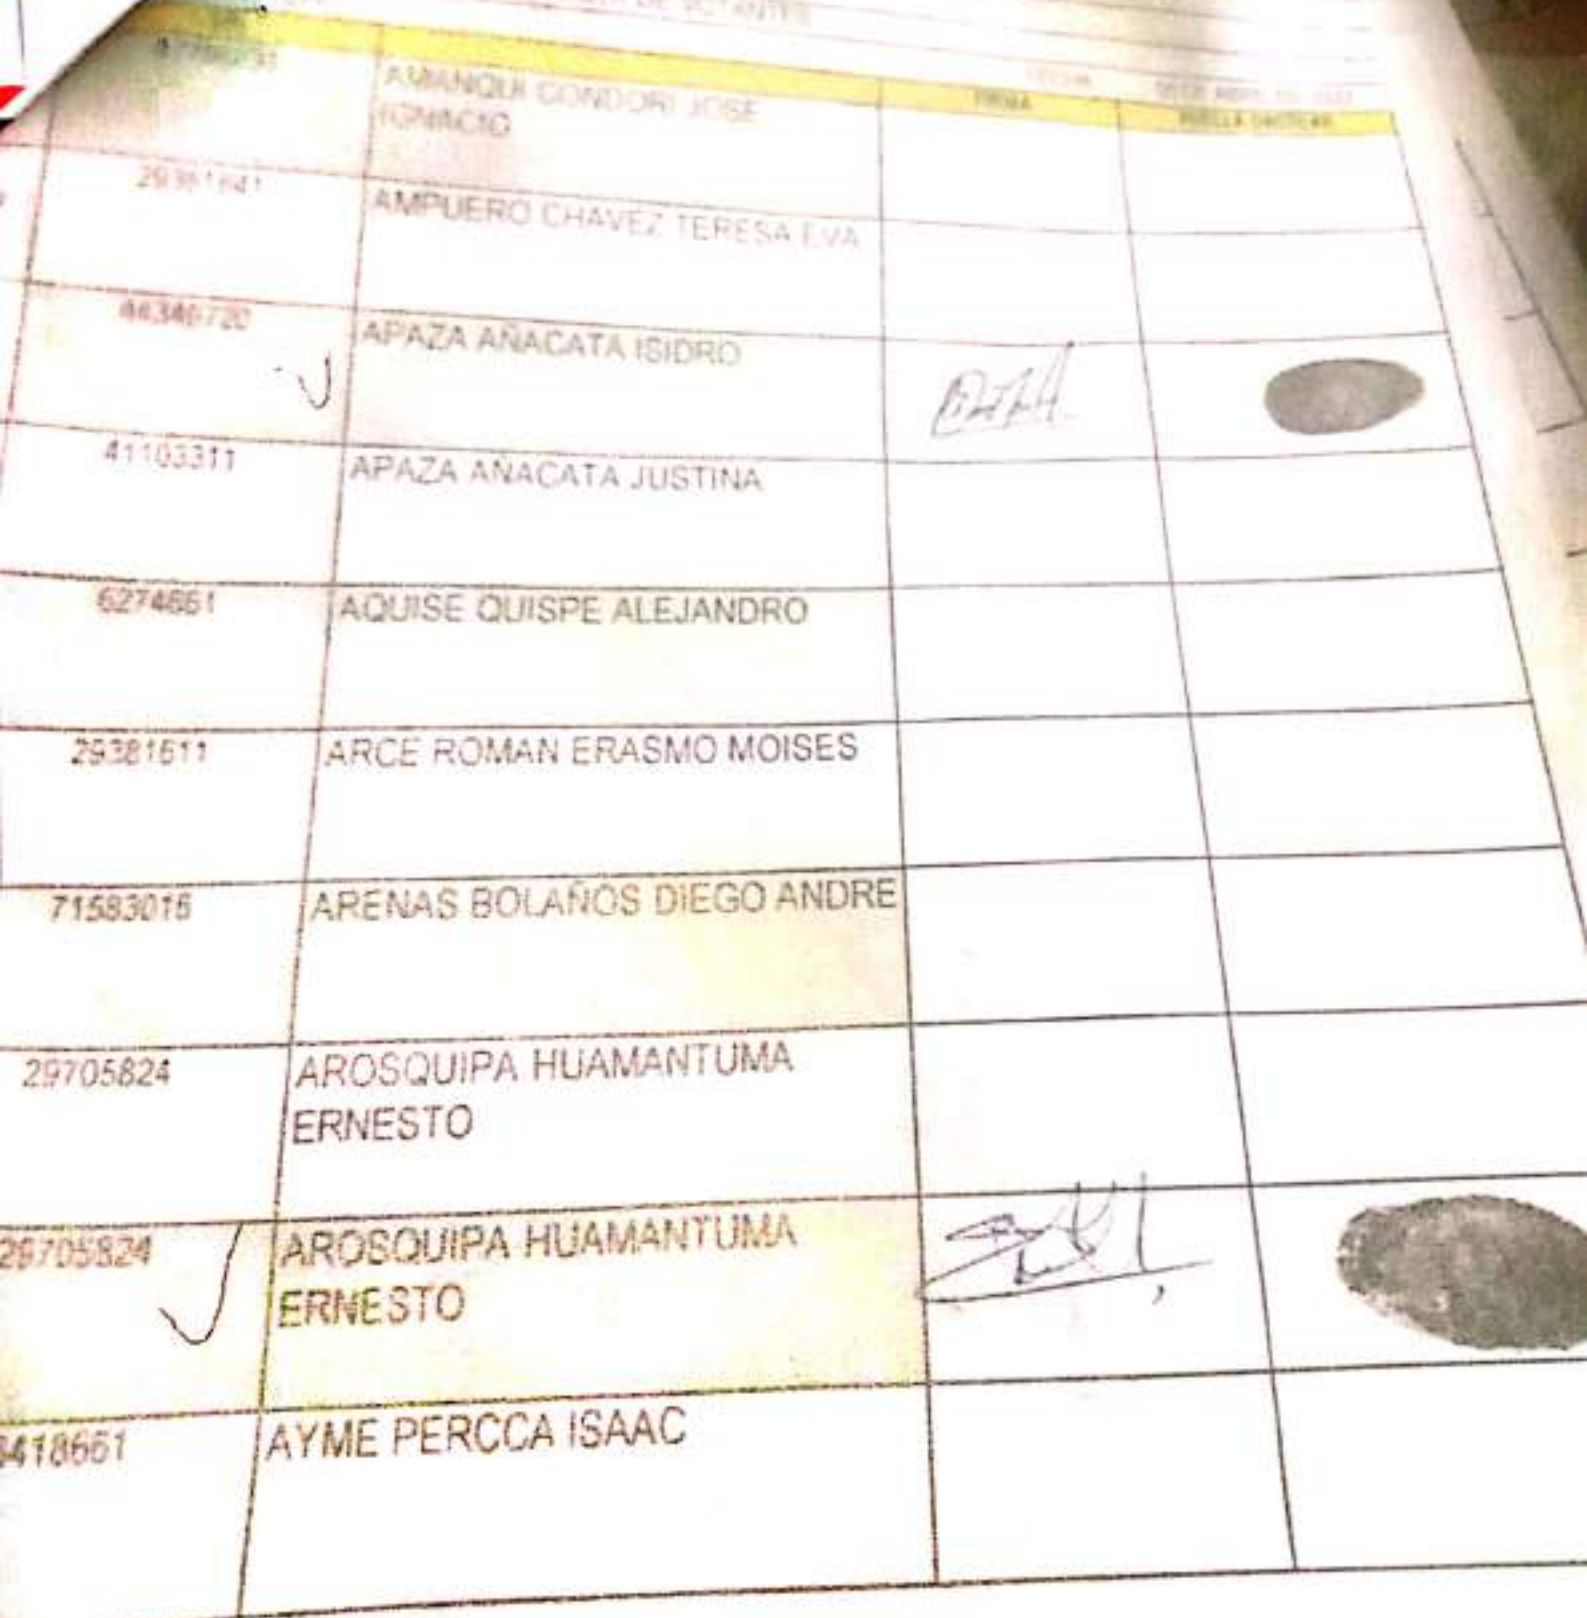 DE VOTANTES
FECHA
FIRMA
HUELLA DACTILAR
AMANQUI CONDORI JOSE
IGNACIO
29381641
AMPUERO CHAVEZ TERESA EVA
44346720
APAZA AÑACATA ISIDRO
41103311
APAZA AÑACATA JUSTINA
6274661
AQUISE QUISPE ALEJANDRO
29381611
ARCE ROMAN ERASMO MOISES
71583016
ARENAS BOLAÑOS DIEGO ANDRE
29705824
AROSQUIPA HUAMANTUMA
ERNESTO
29705824
AROSQUIPA HUAMANTUMA
ERNESTO
418661
AYME PERCCA ISAAC